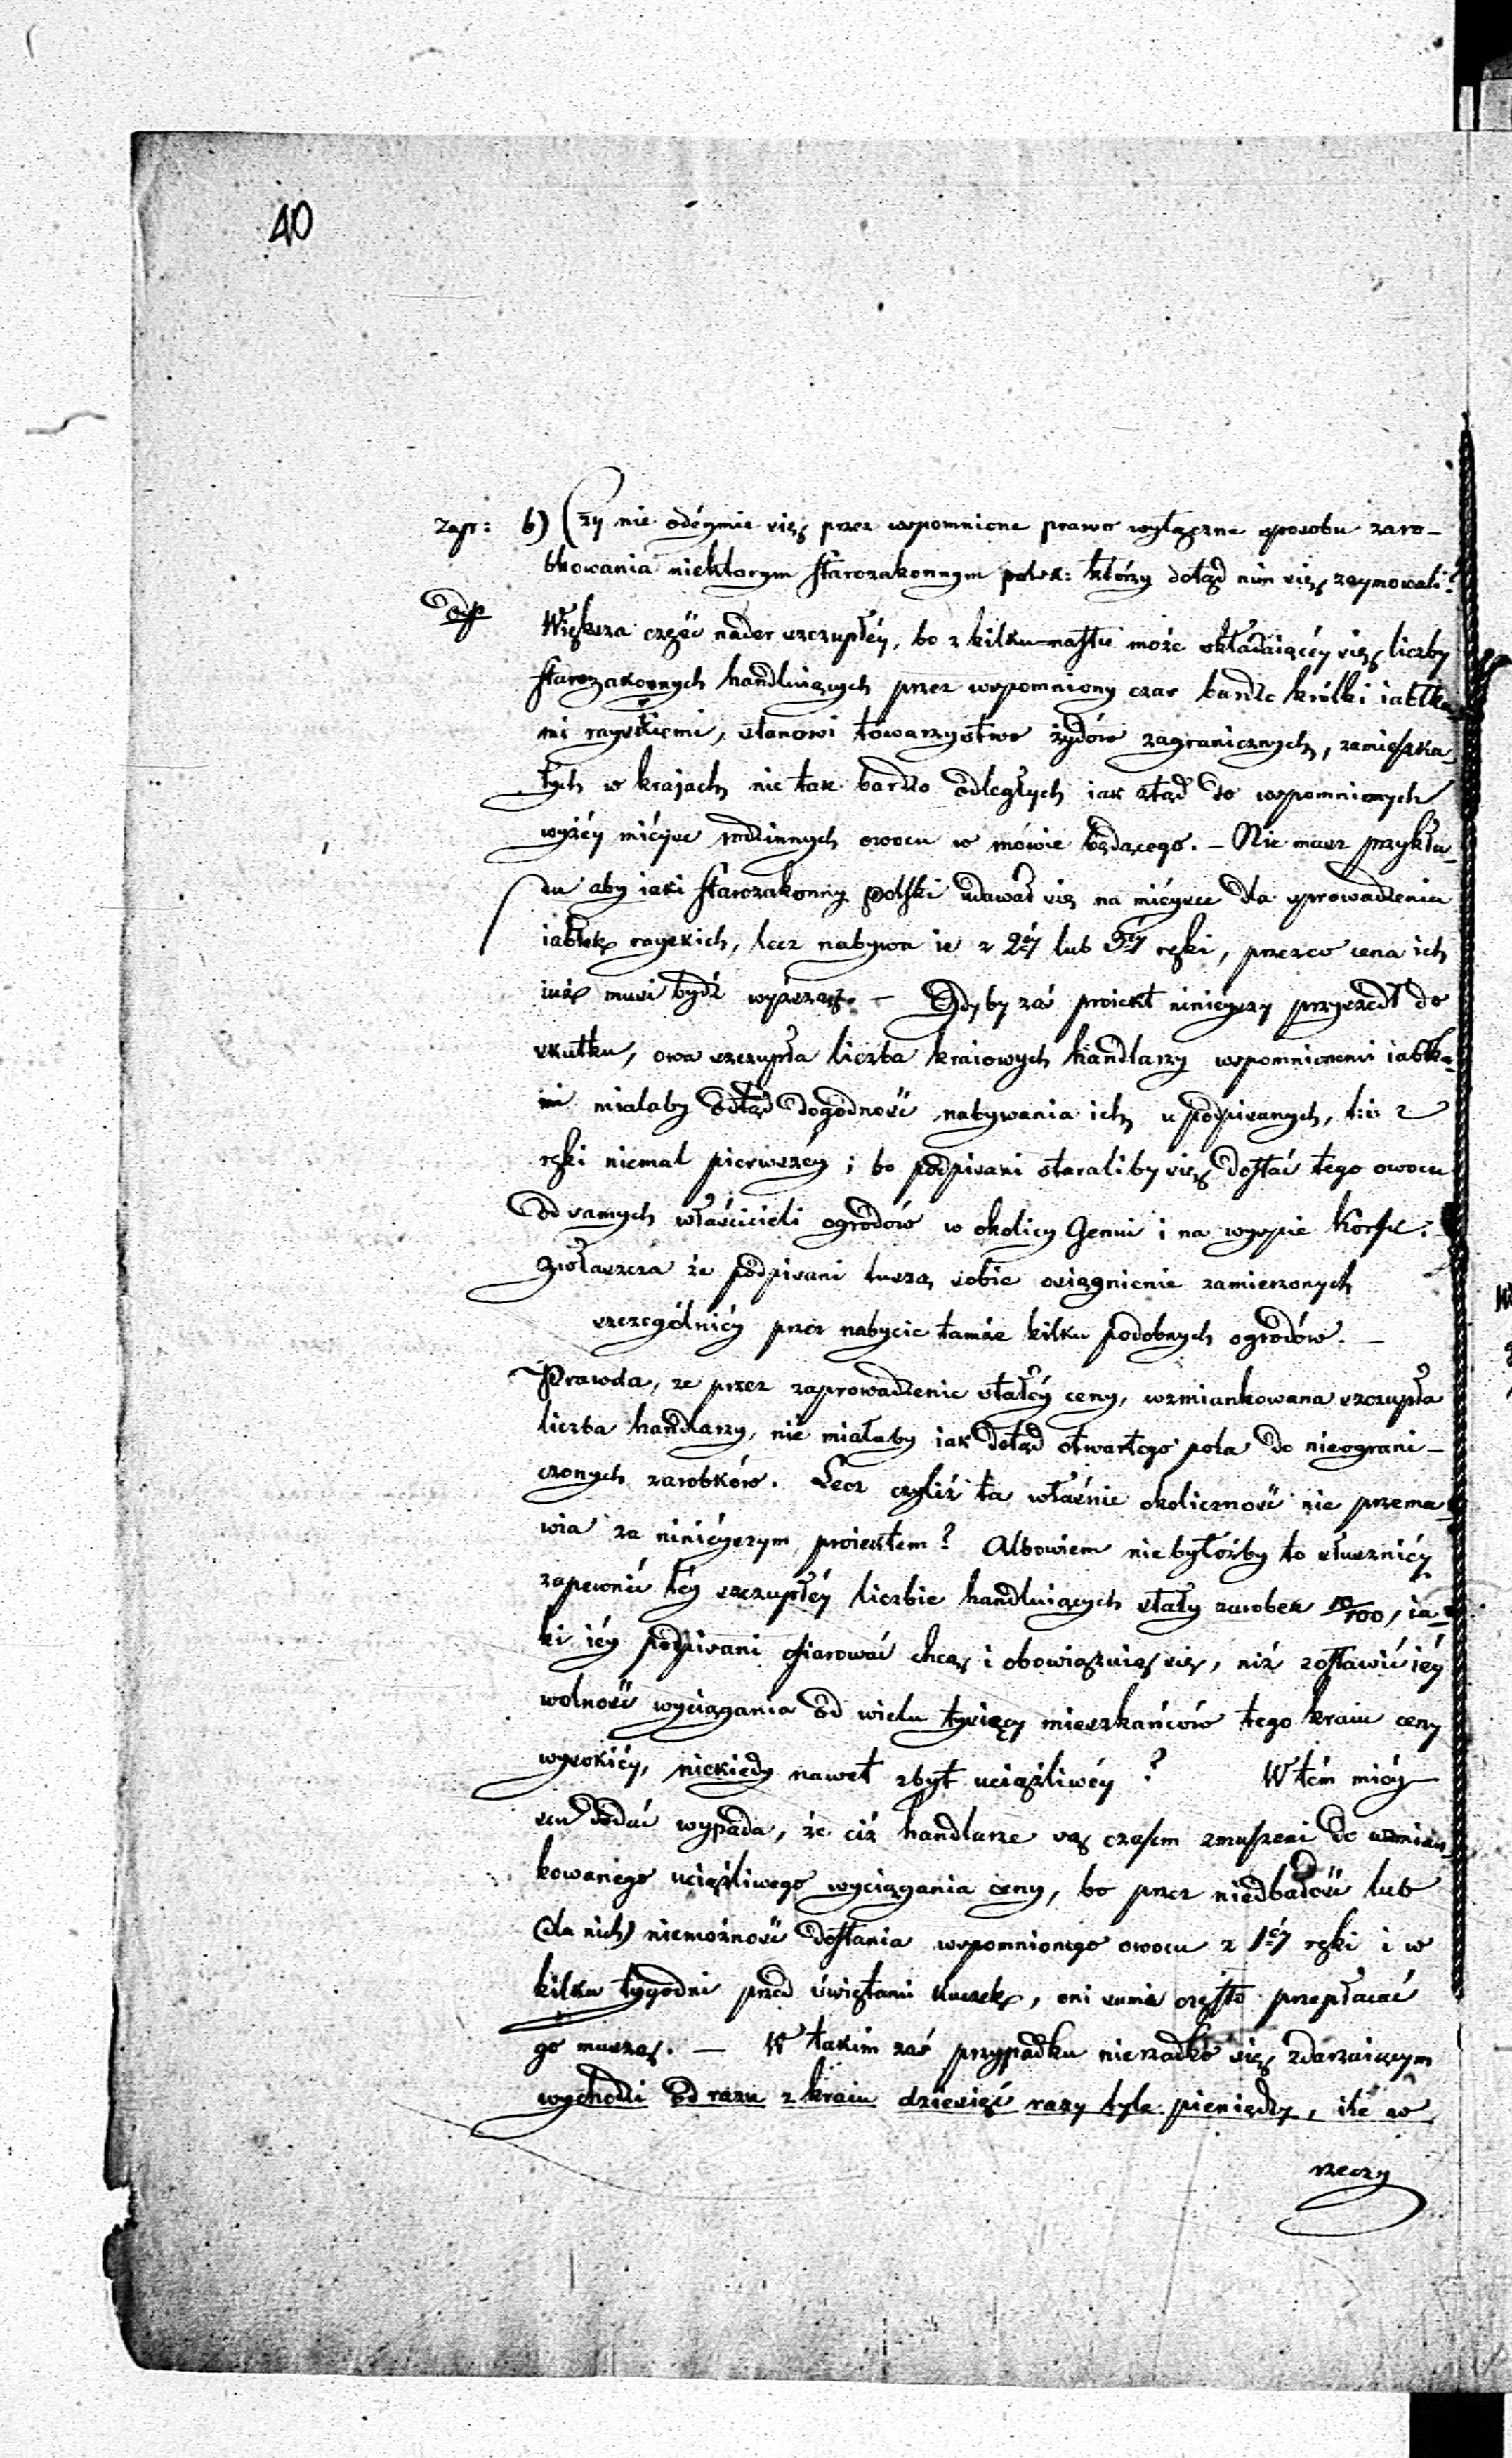 40
zap: b) Czy nie odéymie się przez wspomnione prawo wyłączne sposobu zaro-
bkowania niektorym starozakonnym polsk: którzy dotąd nim się zaymowali?
Odp Większa część nader szczupłéy, bo z kilku-nastu może składaiącéy się liczby
starozakonnych handluiących przez wspomniony czas bardzo krótki iabłka-
mi rayskiemi, stanowi towarzystwo żydów zagranicznych, zamieszka-
łych w krajach nie tak bardzo odległych iak ztąd do wspomnionych
wyżéy miéysc rodzinnych owocu w mówie będącego. — Nie masz przykła-
du aby iaki starozakonny polski udawał się na miéysce dla sprowadzenia
iabłek rayskich, lecz nabywa ie z 2éy lub 3éy ręki, przezco cena ich
iuż musi bydź wyższa. — Gdyby zaś proiekt niniéyszy przyszedł do
skutku, owa szczupła liczba kraiowych handlarzy wspomnionemi iabłka-
mi miałaby odtąd dogodność nabywania ich u podpisanych, t: i: z
ręki niemal pierwszéy; bo podpisani staraliby się dostać tego owocu
od samych właścicieli ogrodów w okolicy Genui i na wyspie Korfu;
zwłaszcza że podpisani tuszą sobie osiągnienie zamierzonych
szczególniéy przez nabycie tamże kilku podobnych ogrodów. —
Prawda, że przez zaprowadzenie stałéy ceny, wzmiankowana szczupła
liczba handlarzy, nie miałaby iak dotąd otwartego pola do nieograni-
czonych zarobków. Lecz czyliż ta właśnie okoliczność nie przema-
wia za niniéyszym proiektem? Albowiem niebyłożby to słuszniéy
zapewnić téy szczupłéy liczbie handluiących stały zarobek 10/100, ia-
ki iéy podpisani ofiarować chcą i obowiązuią się, niż zostawić iéy
wolność wyciągania od wielu tysięcy mieszkańców tego kraiu ceny
wysokiéy, niekiedy nawet zbyt uciążliwéy? W tém miéy-
scu dodać wypada, że ciż handlarze są czasem zmuszeni do wzmian-
kowanego uciążliwego wyciągania ceny, bo przez niedbałość lub
(dla nich) niemożność dostania wspomnionego owocu z 1éy ręki i w
kilku tygodni przed świętami kuczek, oni sami często przepłacać
go muszą. — W takim zaś przypadku nierzadko się zdarzaiącym
wychodzi od razu z kraiu dziesięć razy tyle pieniędzy, ile w
rzeczy